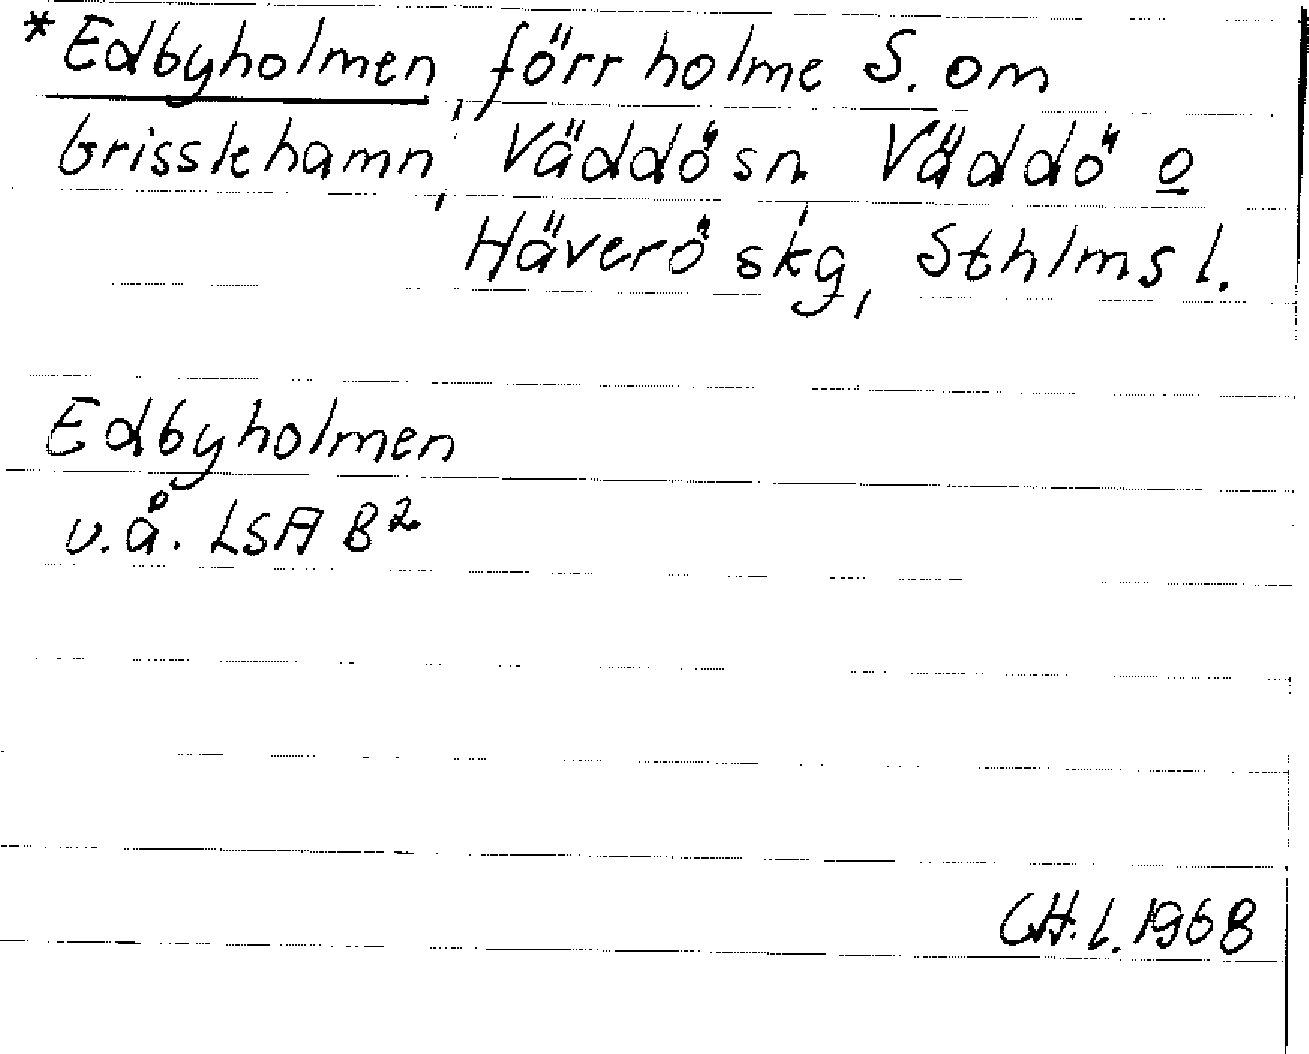 *Edbyholmen, förr holme S. om
Grisslehamn, Väddö sn, Väddö o
Häverö skg, Sthlms l.
Edbyholmen
u.å. LSA B²
G.H.L. 1968